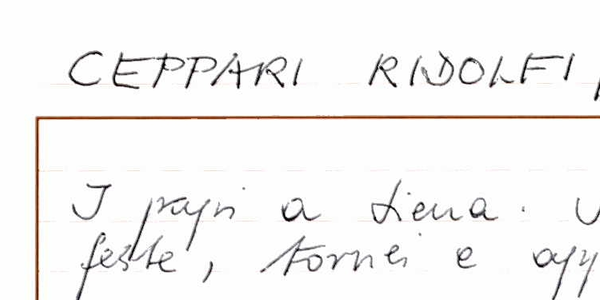 CEPPARI RIDOLFI
I papi a Siena.
feste, tornei e